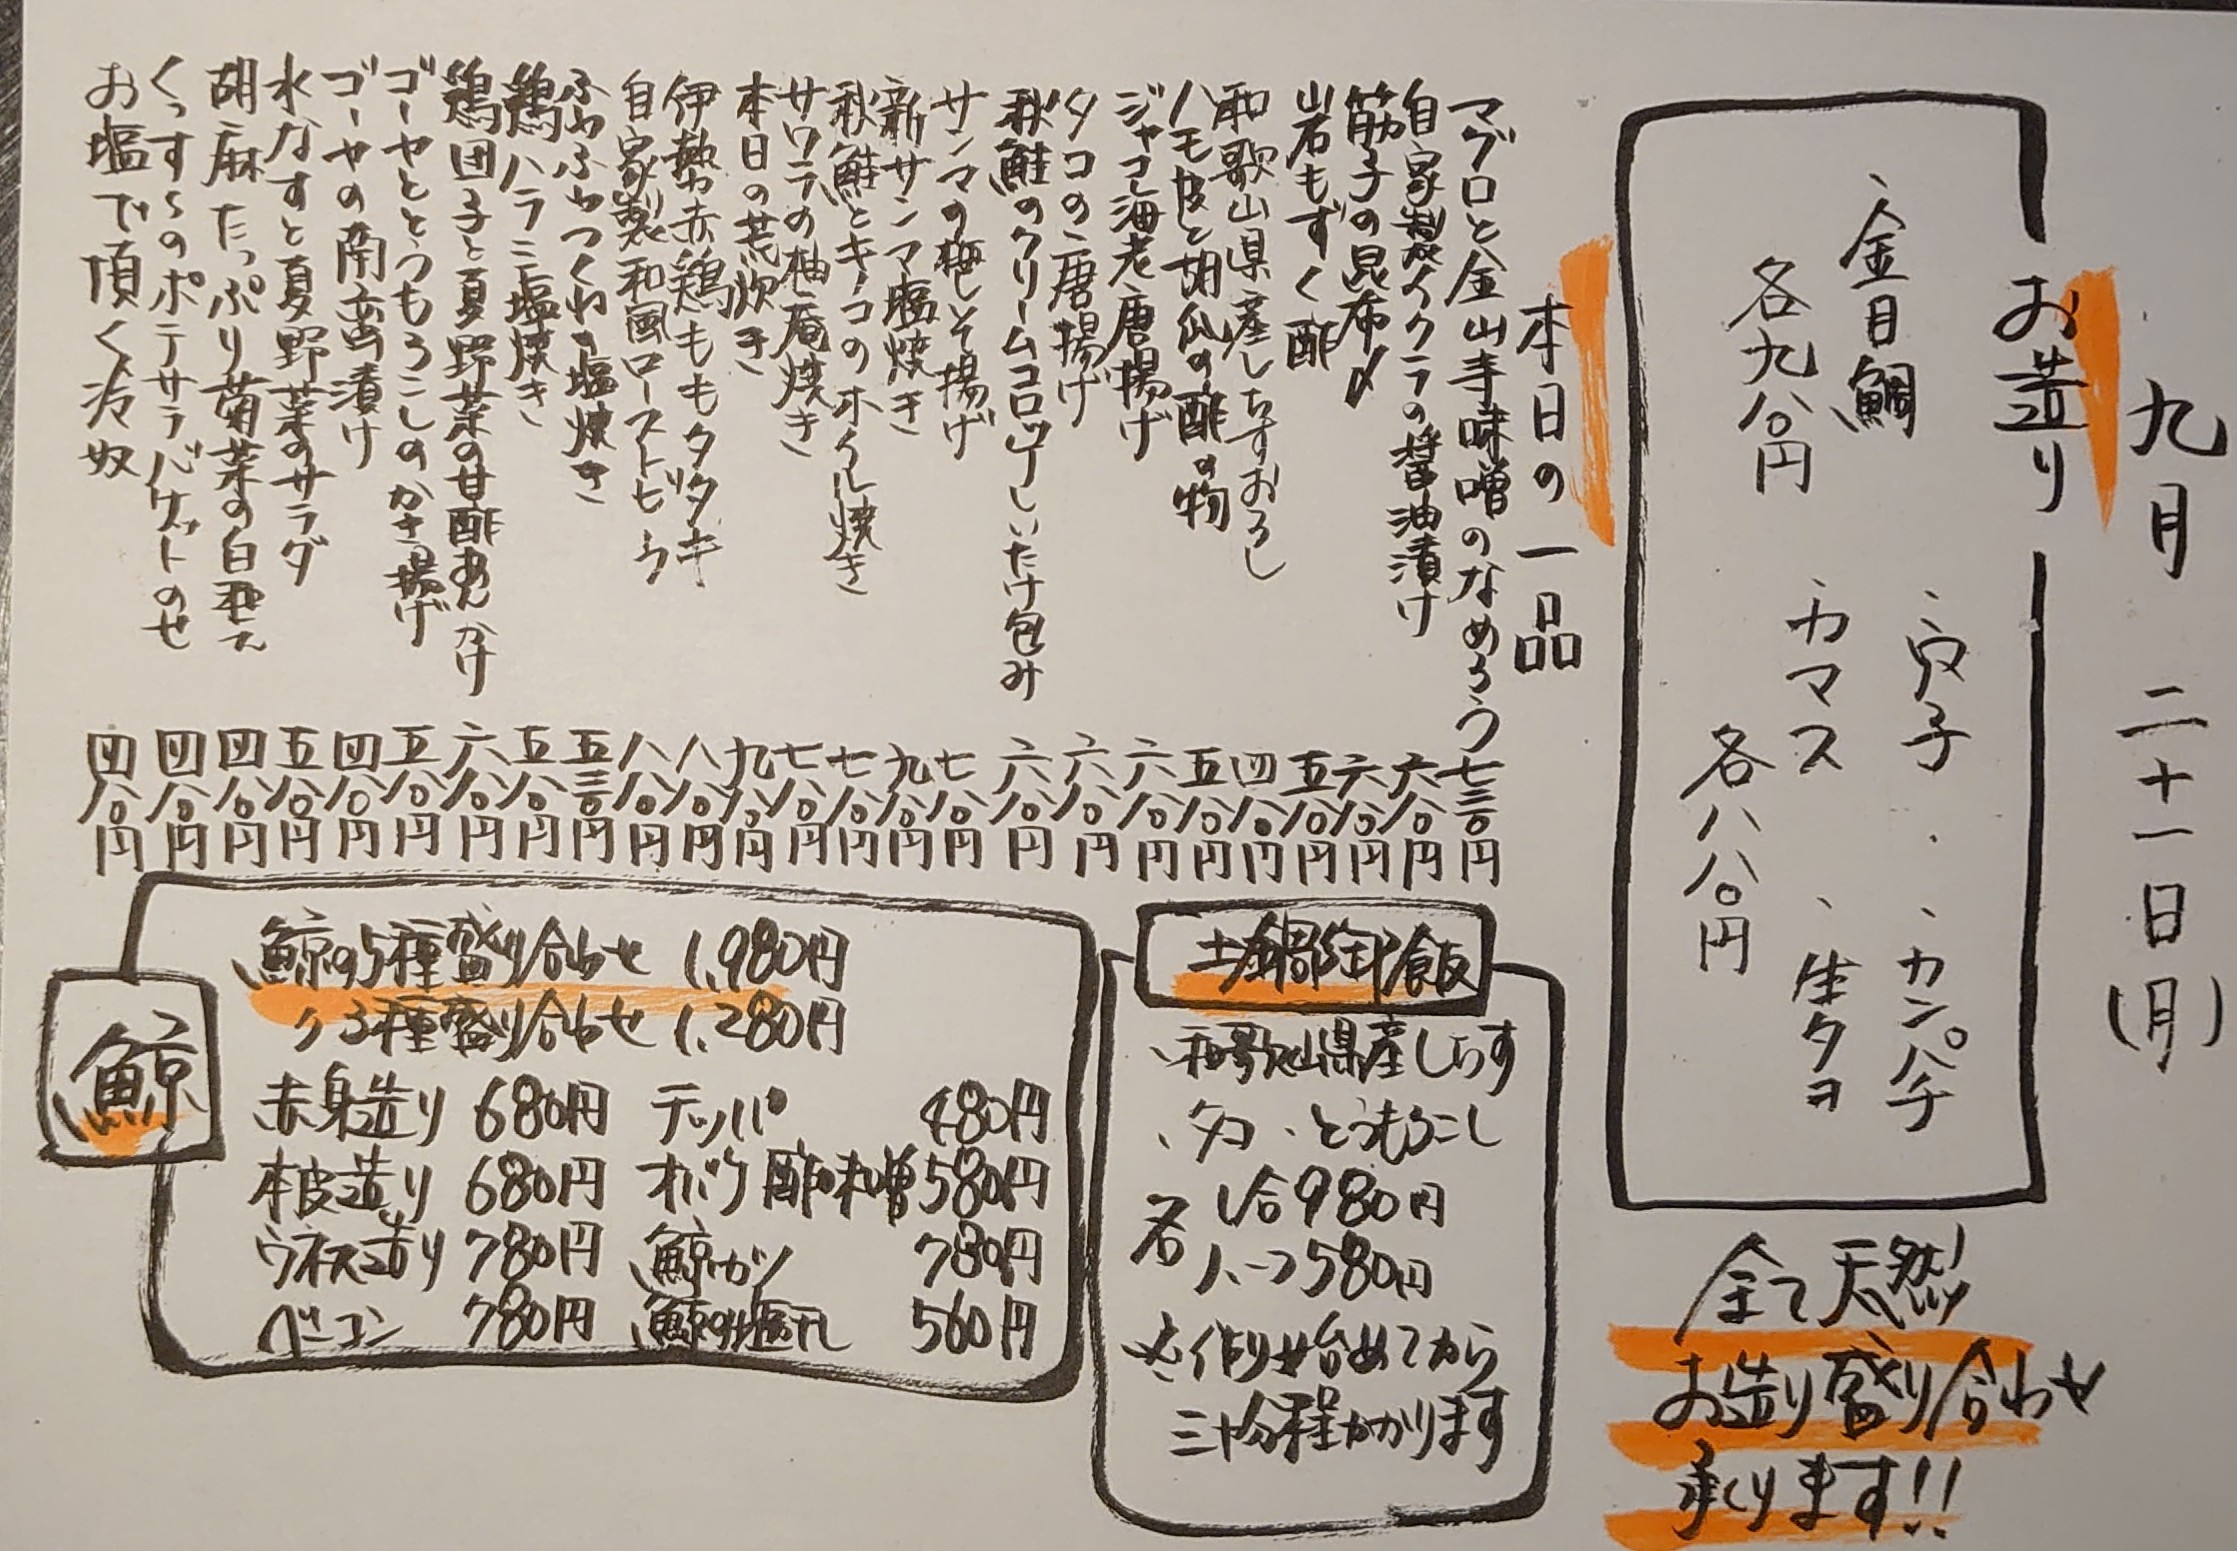 九月二十一日(月)
お造り
、穴子 、カンパチ
、金目鯛 、カマス 、生タコ
各九八〇円 各八八〇円
全て天然
お造り盛り合わせ
承ります!!
本日の一品
マグロと金山寺味噌のなめろう 七三〇円
自家製イクラの醤油漬け 六八〇円
筋子の昆布〆 六八〇円
岩もずく酢 五八〇円
和歌山県産しらすおろし 四八〇円
ハモ皮と胡瓜の酢の物 五八〇円
ジャコ海老唐揚げ 六八〇円
タコの唐揚げ 六八〇円
秋鮭のクリームコロッケしいたけ包み 六八〇円
サンマの梅しそ揚げ 七八〇円
新サンマ塩焼き 九八〇円
秋鮭とキノコのホイル焼き 七八〇円
サワラの柚庵焼き 七八〇円
本日の荒炊き 九八〇円
伊勢赤鶏ももタタキ 八八〇円
自家製和風ローストビーフ 八八〇円
ふわふわつくねの塩焼き 五三〇円
鶏ハラミ塩焼き 五八〇円
鶏団子と夏野菜の甘酢あんかけ 六八〇円
ゴーヤととうもろこしのかき揚げ 五八〇円
ゴーヤの南蛮漬け 四八〇円
水なすと夏野菜のサラダ 五八〇円
胡麻たっぷり菊菜の白和え 四八〇円
くっすーのポテサラバケットのせ 四八〇円
お塩で頂く冷奴 四八〇円
土鍋御飯
、和歌山県産しらす
、タコ 、とうもろこし
各 一合980円
ハーフ580円
※作り始めてから
三十分程かかります
鯨
鯨の5種盛り合わせ 1,980円
〃 3種盛り合わせ 1,280円
赤身造り 680円 テッパ 480円
本皮造り 680円 オバケ酢味噌 580円
ウネス造り 780円 鯨カツ 780円
ベーコン 780円 鯨の塩タレ 560円